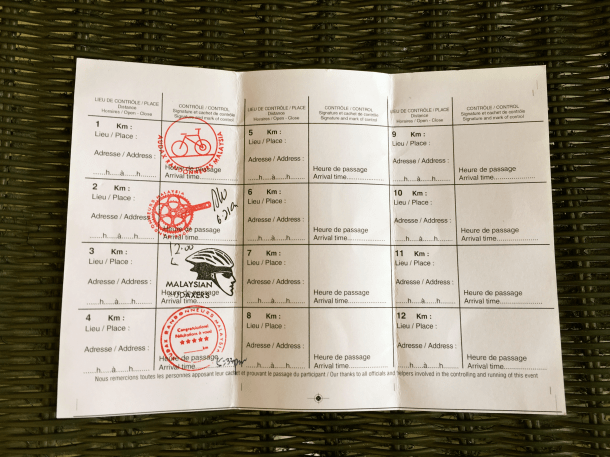 LIEU DE CONTRÔLE / PLACE
Distance
Horaires / Open - Close
CONTRÔLE / CONTROL
Signature et cachet de contrôle
Signature and mark of control
1 Km :
Lieu / Place :
Adresse / Address :
....h....à....h....
AUDAX RANDONNEURS MALAYSIA
Heure de passage
Arrival time
2 Km :
Lieu / Place :
Adresse / Address :
....h....à....h....
MALAYSIA
Heure de passage
Arrival time
3 Km :
Lieu / Place :
....h....à....h....
12.00
MALAYSIAN
Heure de passage
Arrival time
4 Km :
Lieu / Place :
Adresse / Address :
....h....à....h....
AUDAX RANDONNEURS MALAYSIA
Congratulations!
Félicitations à vous!
Heure de passage
Arrival time
LIEU DE CONTRÔLE / PLACE
Distance
Horaires / Open - Close
CONTRÔLE / CONTROL
Signature et cachet de contrôle
Signature and mark of control
5 Km :
Lieu / Place :
Adresse / Address :
....h....à....h....
Heure de passage
Arrival time
6 Km :
Lieu / Place :
Adresse / Address :
....h....à....h....
Heure de passage
Arrival time
7 Km :
Lieu / Place :
Adresse / Address :
....h....à....h....
Heure de passage
Arrival time
8 Km :
Lieu / Place :
Adresse / Address :
....h....à....h....
Heure de passage
Arrival time
LIEU DE CONTRÔLE / PLACE
Distance
Horaires / Open - Close
CONTRÔLE / CONTROL
Signature et cachet de contrôle
Signature and mark of control
9 Km :
Lieu / Place :
Adresse / Address :
....h....à....h....
Heure de passage
Arrival time
10 Km :
Lieu / Place :
Adresse / Address :
....h....à....h....
Heure de passage
Arrival time
11 Km :
Lieu / Place :
Adresse / Address :
....h....à....h....
Heure de passage
Arrival time
12 Km :
Lieu / Place :
Adresse / Address :
....h....à....h....
Heure de passage
Arrival time
Nous remercions toutes les personnes apposant leur cachet et prouvant le passage du participant / Our thanks to all officials and helpers involved in the controlling and running of this event